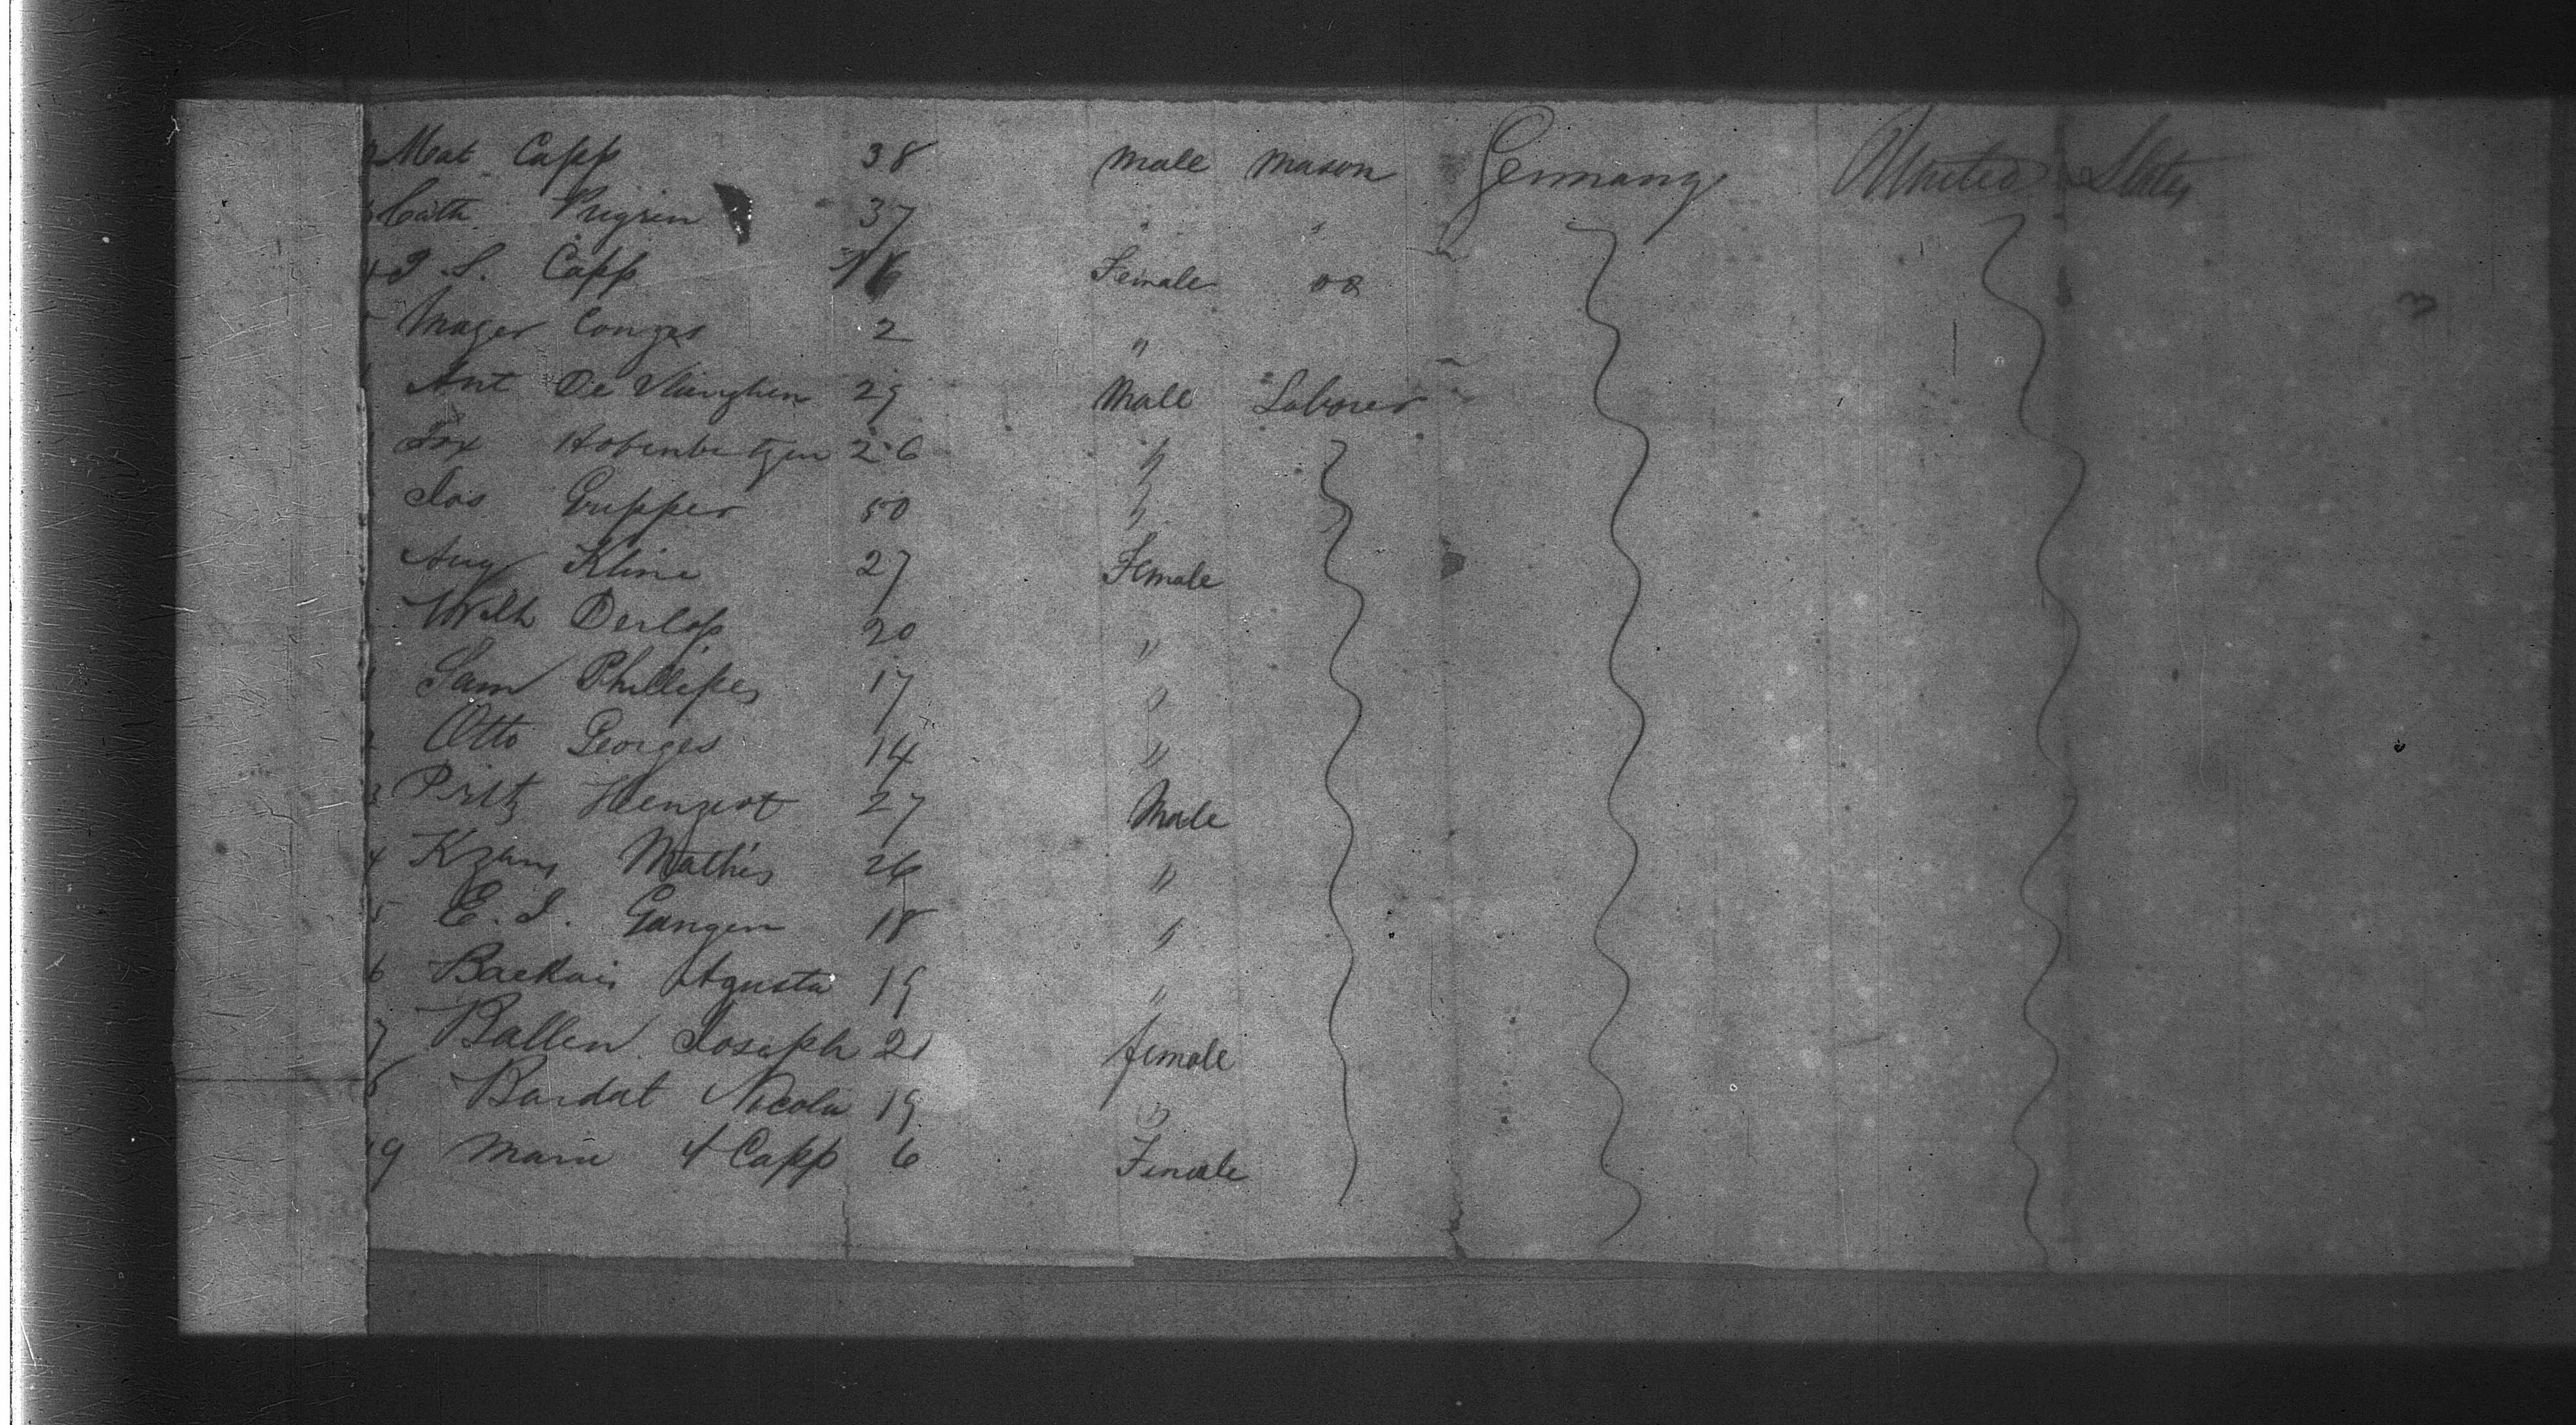 Mat Capp 38 Male Mason Germany United States
Cath Pregrin 37 " "
J. S. Capp Female
Mager Conges 2 "
Ant De Vlainghen 29 Male Laborer
Hobenbetzen 26 "
Jos Gripper 50 "
Aug Kline 27 Female
Wilh Derlop 20 "
Sam Phillipes 17 "
Otto Georges 14 "
3 Pritz Henzert 27 Male
4 Kzams Mathis 26 "
5 E. J. Gangen 18 "
6 Backais Agusta 19 "
7 Ballen Joseph 21 female
8 Bardat Nicola 19 "
19 Marie Capp 6 Female